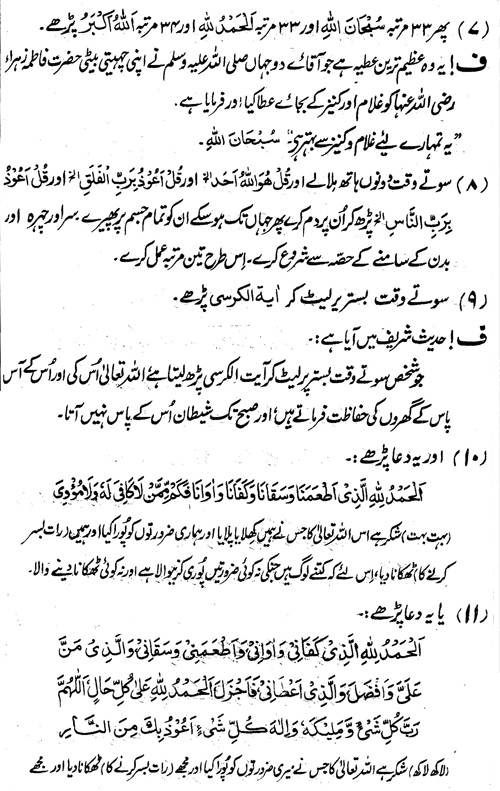 (۷) پھر ۳۳ مرتبہ سُبْحَانَ اللهِ اور ۳۳ مرتبہ اَلْحَمْدُ لِلّٰهِ اور ۳۴ مرتبہ اَللهُ اَكْبَرُ پڑھے۔
ف! یہ وہ عظیم ترین عطیہ ہے جو آقائے دوجہاں صلی اللہ علیہ وسلم نے اپنی چہیتی بیٹی حضرت فاطمہ زہراء
رضی اللہ عنہا کو غلام اور کنیز کے بجائے عطا کیا، اور فرمایا ہے۔
”یہ تمہارے لئے غلام و کنیز سے بہتر ہے“ سُبْحَانَ اللهِ۔
(۸) سوتے وقت دونوں ہاتھ ملالے اور قُلْ هُوَ اللهُ اَحَدٌ الخ اور قُلْ اَعُوْذُ بِرَبِّ الْفَلَقِ الخ اور قُلْ اَعُوْذُ
بِرَبِّ النَّاسِ الخ پڑھ کر اُن پر دم کرے پھر جہاں تک ہوسکے ان کو تمام جسم پر پھیرے سر اور چہرہ اور
بدن کے سامنے کے حصّہ سے شروع کرے۔ اِس طرح تین مرتبہ عمل کرے۔
(۹) سوتے وقت بستر پر لیٹ کر اٰیة الکرسی پڑھے۔
ف! حدیث شریف میں آیا ہے:۔
جو شخص سوتے وقت بستر پر لیٹ کر آیت الکرسی پڑھ لیتا ہے، اللہ تعالیٰ اُس کی اور اُس کے آس
پاس کے گھروں کی حفاظت فرماتے ہیں، اور صبح تک شیطان اُس کے پاس نہیں آتا۔
(۱۰) اور یہ دعا پڑھے:۔
اَلْحَمْدُ لِلّٰهِ الَّذِىْ اَطْعَمَنَا وَسَقَانَا وَكَفَانَا وَاٰوَانَا فَكَمْ مِّمَّنْ لَّا كَافِىَ لَهٗ وَلَا مُؤْوِىَ
(بہت بہت) شکر ہے اس اللہ تعالیٰ کا جس نے ہمیں کھلایا پلایا اور ہماری ضرورتوں کو پورا کیا اور ہمیں (رات بسر
کرنے کا) ٹھکانا دیا، اس لئے کہ کتنے لوگ ہیں جنکی نہ کوئی ضرورتیں پوری کرنیوالا ہے اور نہ کوئی ٹھکانا دینے والا۔
(۱۱) یا یہ دعا پڑھے:۔
اَلْحَمْدُ لِلّٰهِ الَّذِىْ كَفَانِىْ وَاٰوَانِىْ وَاَطْعَمَنِىْ وَسَقَانِىْ وَالَّذِىْ مَنَّ
عَلَىَّ وَاَفْضَلَ وَالَّذِىْ اَعْطَانِىْ فَاَجْزَلَ اَلْحَمْدُ لِلّٰهِ عَلٰى كُلِّ حَالٍ اَللّٰهُمَّ
رَبَّ كُلِّ شَىْءٍ وَّمَلِيْكَهٗ وَاِلٰهَ كُلِّ شَىْءٍ اَعُوْذُ بِكَ مِنَ النَّارِ
(لاکھ لاکھ) شکر ہے اللہ تعالیٰ کا جس نے میری ضرورتوں کو پورا کیا اور مجھے (رات بسر کرنے کا) ٹھکانا دیا اور مجھے